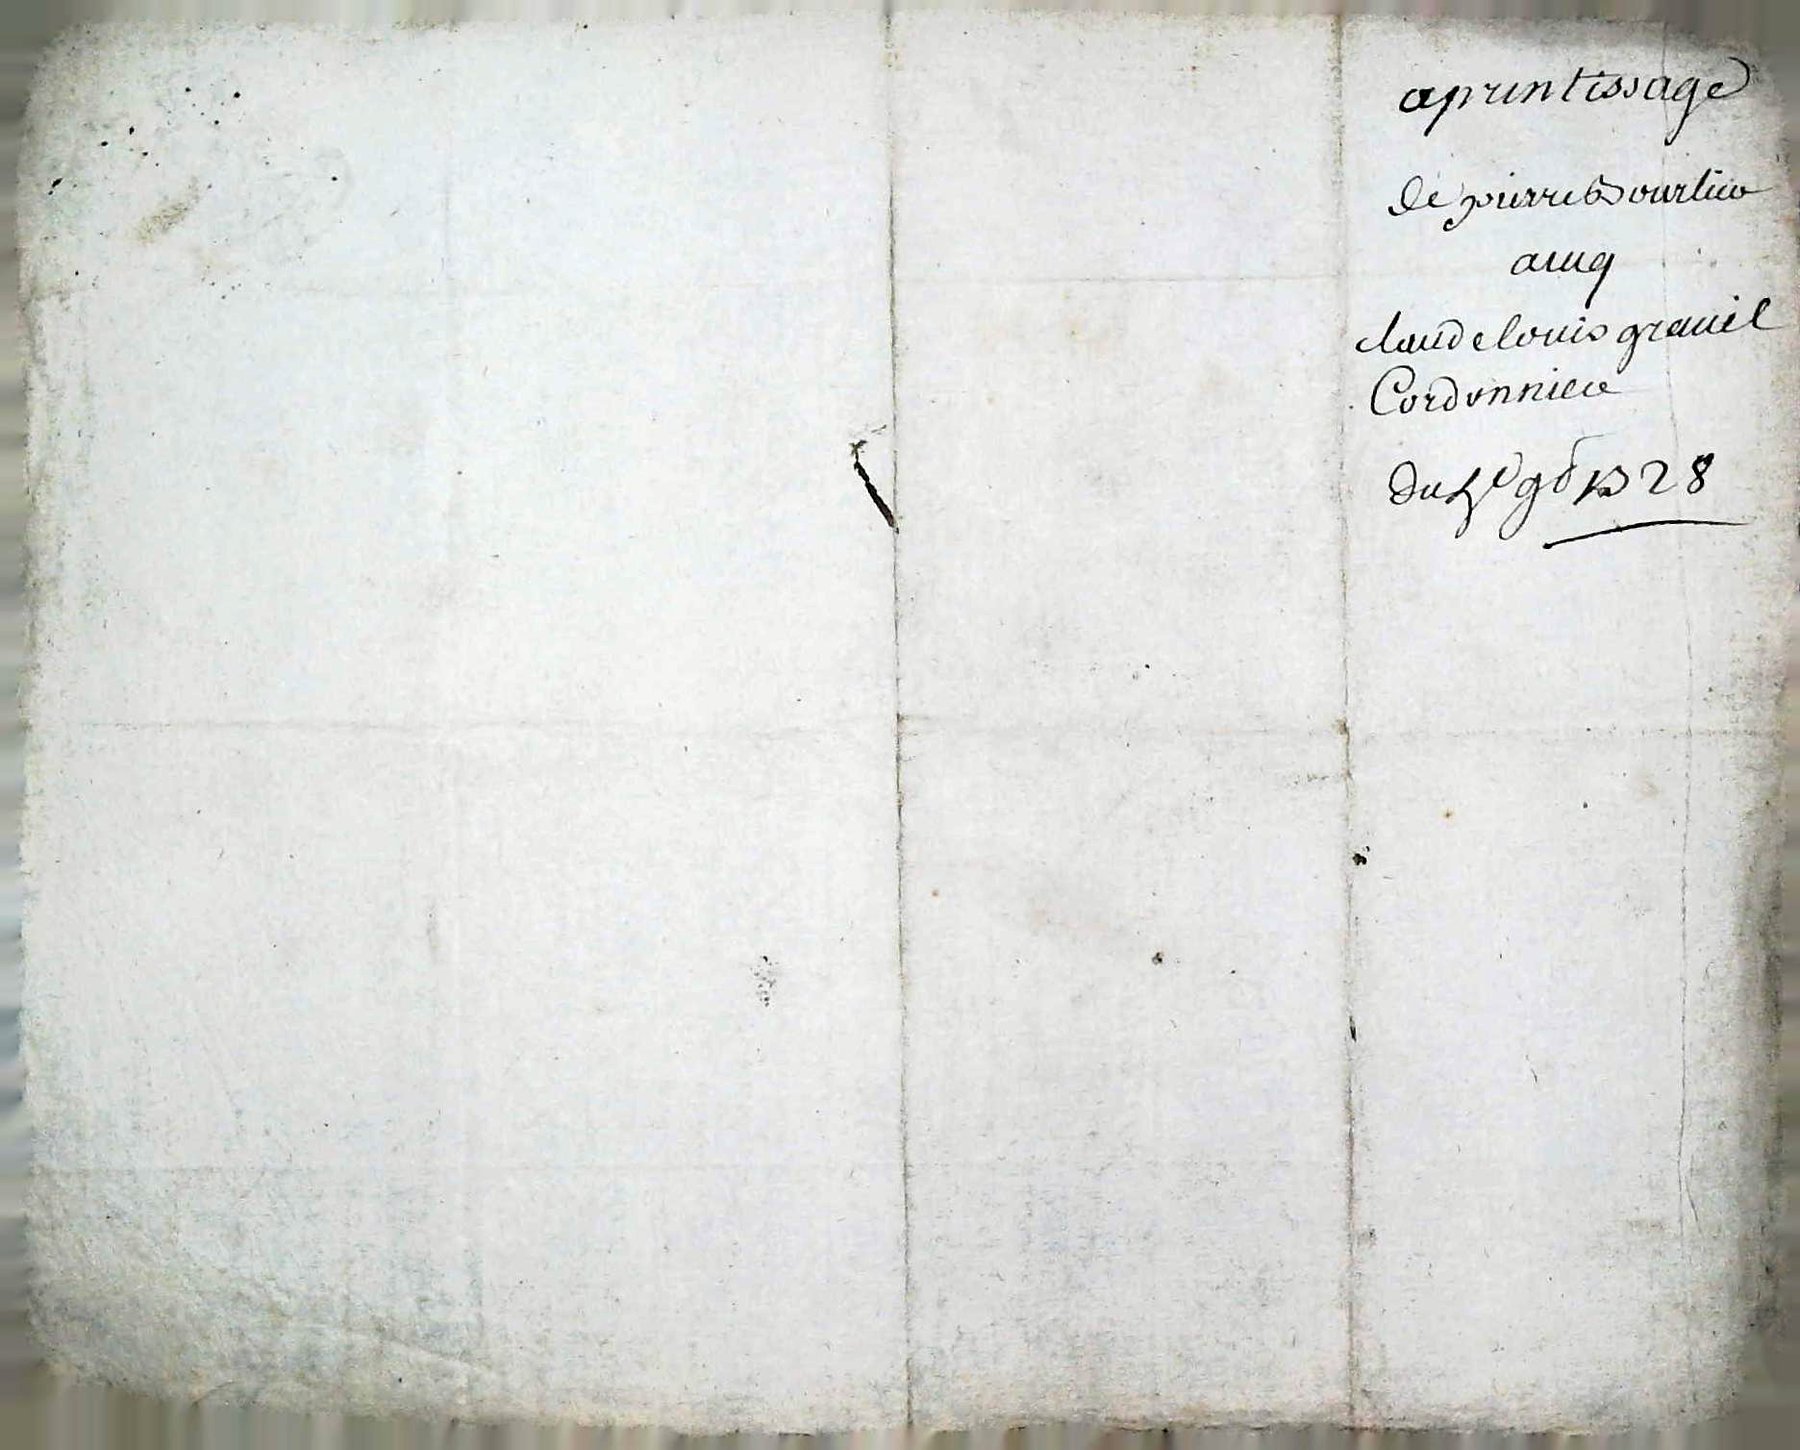 aprentissage
de pierre Bourlier
aueq
claude louis grauil
Cordonnier
du 9b 1728